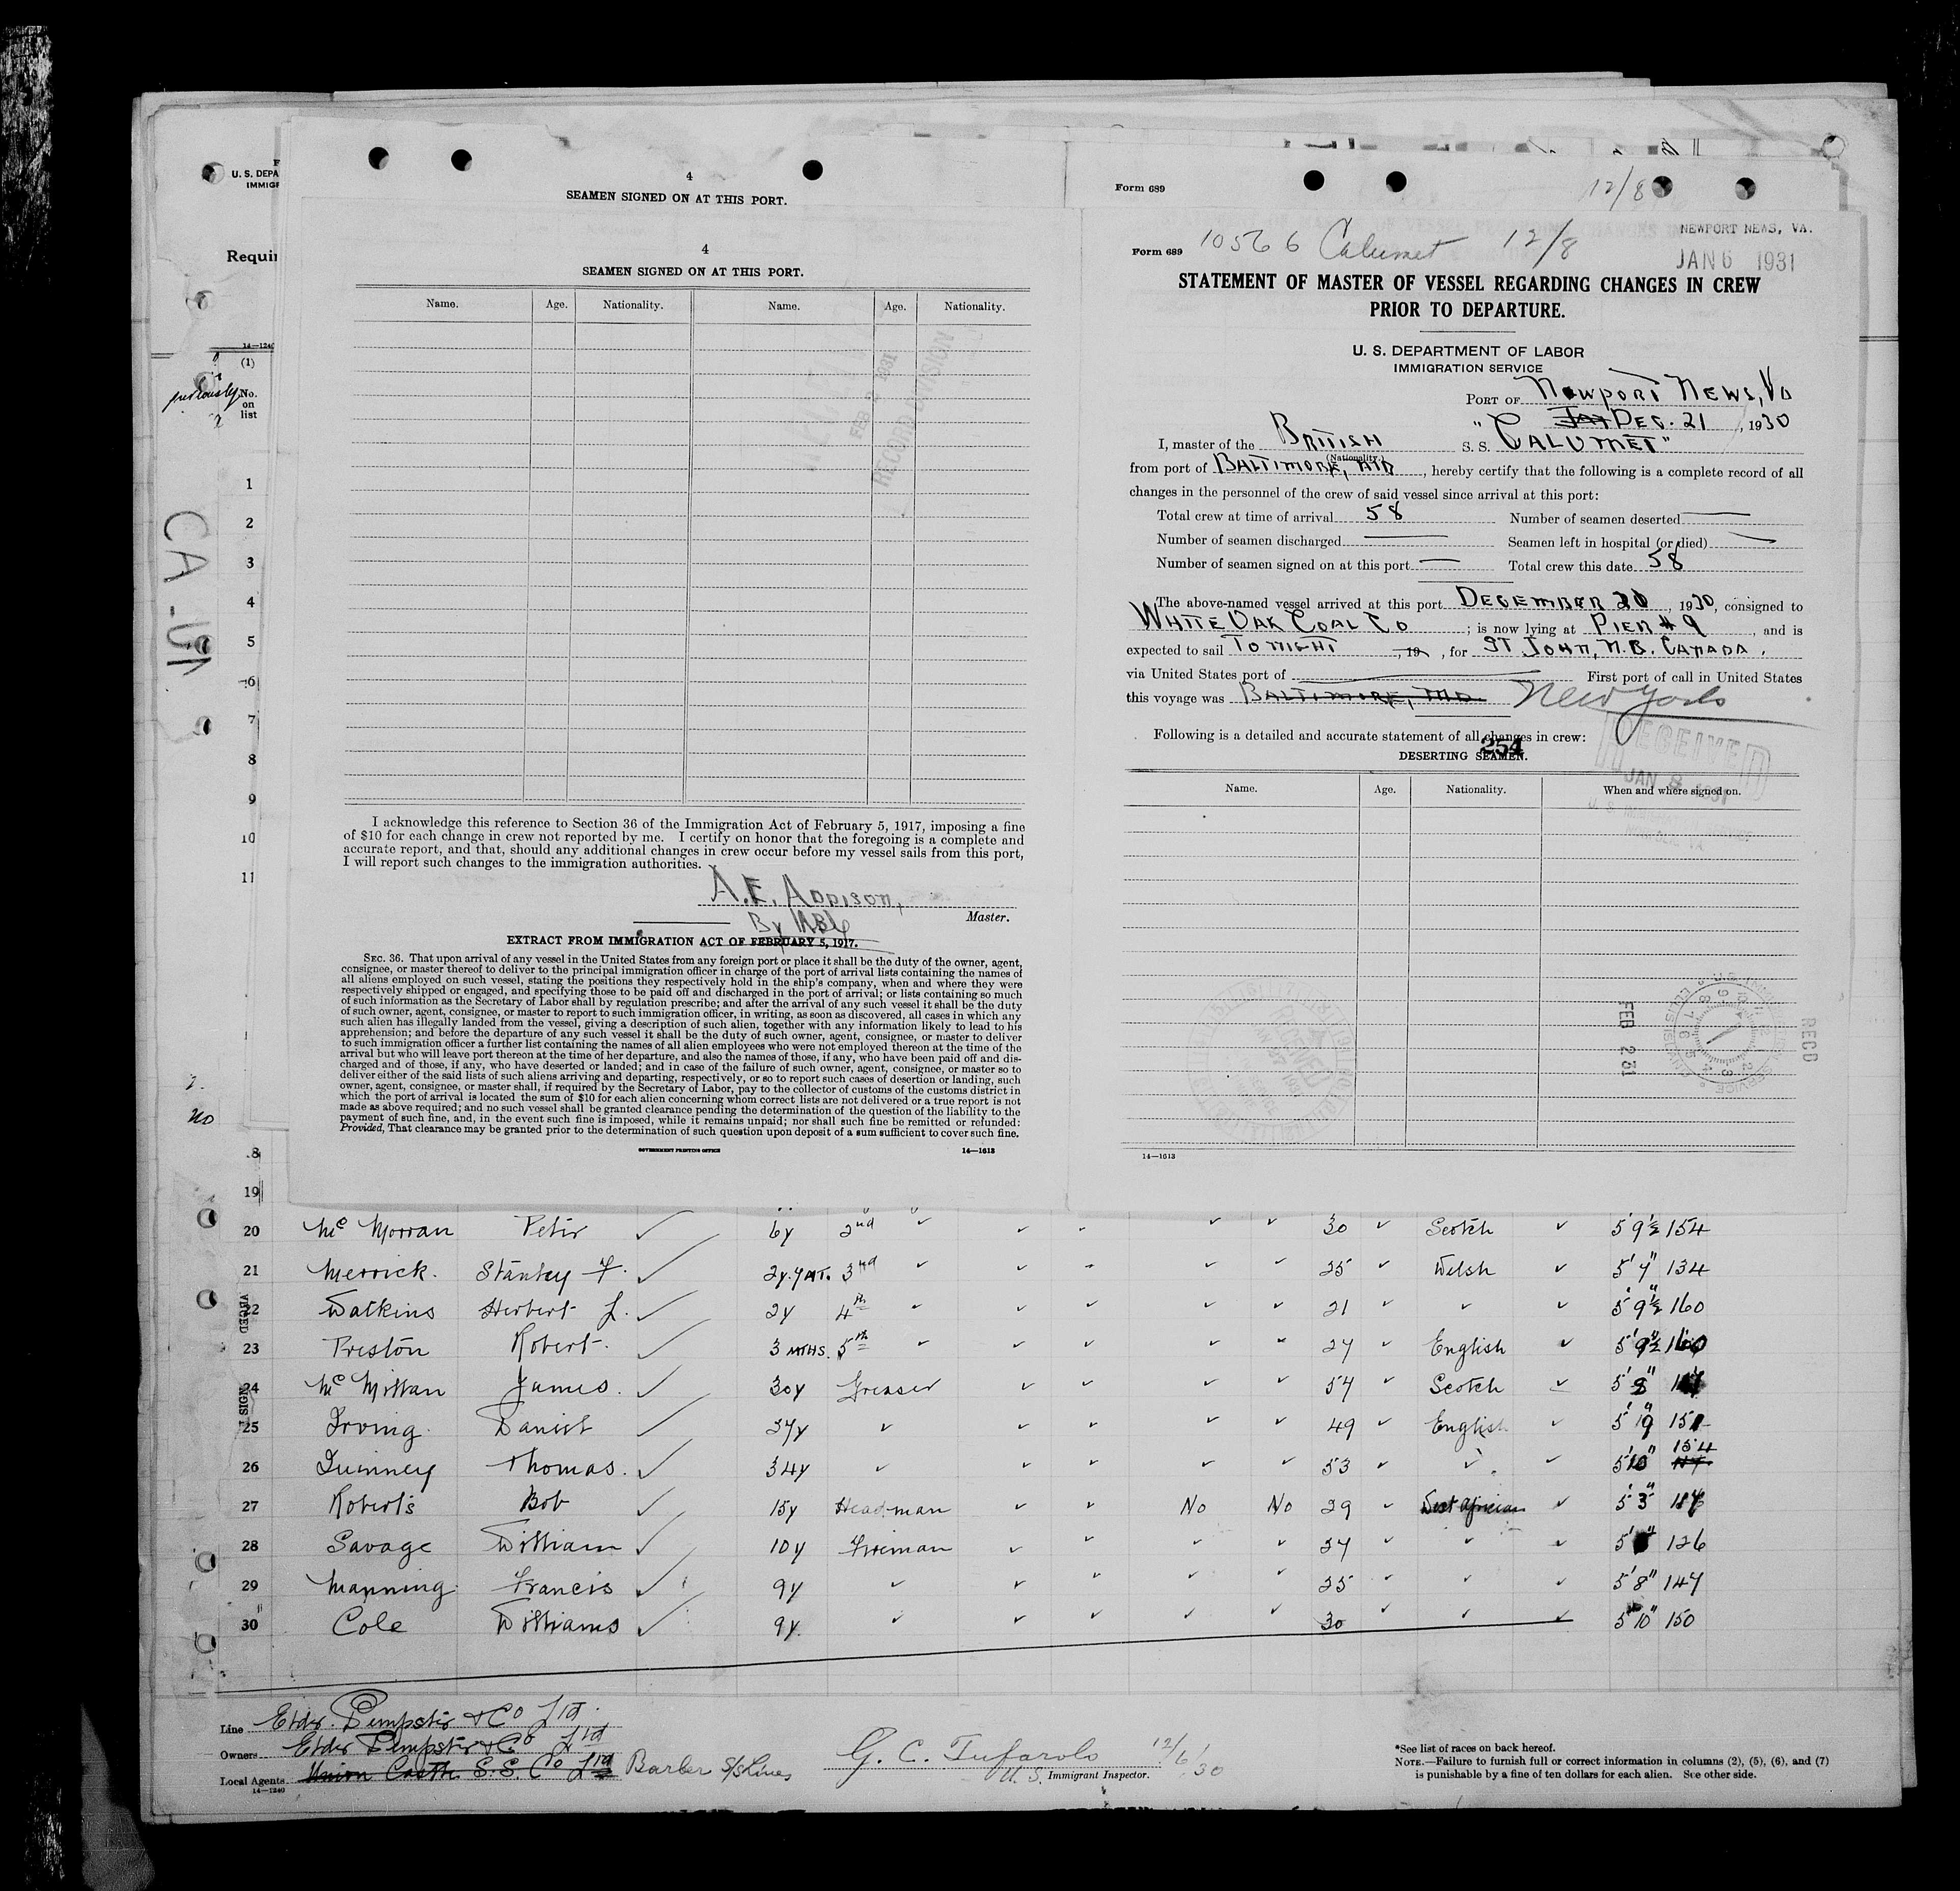 U. S. DEPA
IMMIGR
Requir
14—1240
(1)
previously
No.
on
list
1
2
3
4
5
6
7
8
9
10
11
no
4
SEAMEN SIGNED ON AT THIS PORT.
4
SEAMEN SIGNED ON AT THIS PORT.
Name. Age. Nationality. Name. Age. Nationality.
FEB 1931
RECORD DIVISION
I acknowledge this reference to Section 36 of the Immigration Act of February 5, 1917, imposing a fine
of $10 for each change in crew not reported by me. I certify on honor that the foregoing is a complete and
accurate report, and that, should any additional changes in crew occur before my vessel sails from this port,
I will report such changes to the immigration authorities.
A. E. ADDISON,
Master.
By
EXTRACT FROM IMMIGRATION ACT OF FEBRUARY 5, 1917.
SEC. 36. That upon arrival of any vessel in the United States from any foreign port or place it shall be the duty of the owner, agent,
consignee, or master thereof to deliver to the principal immigration officer in charge of the port of arrival lists containing the names of
all aliens employed on such vessel, stating the positions they respectively hold in the ship's company, when and where they were
respectively shipped or engaged, and specifying those to be paid off and discharged in the port of arrival; or lists containing so much
of such information as the Secretary of Labor shall by regulation prescribe; and after the arrival of any such vessel it shall be the duty
of such owner, agent, consignee, or master to report to such immigration officer, in writing, as soon as discovered, all cases in which any
such alien has illegally landed from the vessel, giving a description of such alien, together with any information likely to lead to his
apprehension; and before the departure of any such vessel it shall be the duty of such owner, agent, consignee, or master to deliver
to such immigration officer a further list containing the names of all alien employees who were not employed thereon at the time of the
arrival but who will leave port thereon at the time of her departure, and also the names of those, if any, who have been paid off and dis-
charged and of those, if any, who have deserted or landed; and in case of the failure of such owner, agent, consignee, or master so to
deliver either of the said lists of such aliens arriving and departing, respectively, or so to report such cases of desertion or landing, such
owner, agent, consignee, or master shall, if required by the Secretary of Labor, pay to the collector of customs of the customs district in
which the port of arrival is located the sum of $10 for each alien concerning whom correct lists are not delivered or a true report is not
made as above required; and no such vessel shall be granted clearance pending the determination of the question of the liability to the
payment of such fine, and, in the event such fine is imposed, while it remains unpaid; nor shall such fine be remitted or refunded:
Provided, That clearance may be granted prior to the determination of such question upon deposit of a sum sufficient to cover such fine.
GOVERNMENT PRINTING OFFICE 14—1613
Form 689 12/8
Form 689 10566 Calumet 12/8
NEWPORT NEWS, VA.
JAN 6 1931
STATEMENT OF MASTER OF VESSEL REGARDING CHANGES IN CREW
PRIOR TO DEPARTURE.
U. S. DEPARTMENT OF LABOR
IMMIGRATION SERVICE
PORT OF NEWPORT NEWS, VA
JAN DEC. 21, 1930
I, master of the BRITISH S. S. "CALUMET"
(Nationality.)
from port of BALTIMORE, MD, hereby certify that the following is a complete record of all
changes in the personnel of the crew of said vessel since arrival at this port:
Total crew at time of arrival 58 Number of seamen deserted —
Number of seamen discharged — Seamen left in hospital (or died) —
Number of seamen signed on at this port — Total crew this date 58
The above-named vessel arrived at this port DECEMBER 20, 1930, consigned to
WHITE OAK COAL CO; is now lying at PIER # 9, and is
expected to sail TONIGHT, 19 , for ST JOHN, N.B. CANADA.
via United States port of — First port of call in United States
this voyage was BALTIMORE, MD. New York
Following is a detailed and accurate statement of all changes in crew:
254
DESERTING SEAMEN.
RECEIVED
JAN 8 1931
Name. Age. Nationality. When and where signed on.
FEB 2 31
RECD
14—1613
18
19
20 McMorran Peter 6y 2nd 30 Scotch 5'9½ 154
21 Merrick. Stanley F. 2y.9MT. 3rd 25 Welsh 5'7" 134
22 Watkins Herbert L. 2y 4th 21 5'9½ 160
23 Preston Robert. 3 MTHS. 5th 27 English 5'9½ 160
24 McMillan James. 30y Greaser 54 Scotch 5'8"
25 Irving. Daniel 27y 49 English 151
26 Quinney Thomas. 34y 53 5'10" 154
27 Roberts Bob 15y Headman No No 29 West African 5'3"
28 Savage William 10y Fireman 34 126
29 Manning Francis 9y 25 5'8" 147
30 Cole Williams 9y. 30 5'10" 150
Line Elder Dempster & Co Ltd.
Owners Elder Dempster & Co Ltd
Local Agents Union Castle S.S. Co Ltd Barber S/S Lines
14—1240
G. C. Tufarolo 12/6/30
U. S. Immigrant Inspector.
*See list of races on back hereof.
NOTE.—Failure to furnish full or correct information in columns (2), (5), (6), and (7)
is punishable by a fine of ten dollars for each alien. See other side.